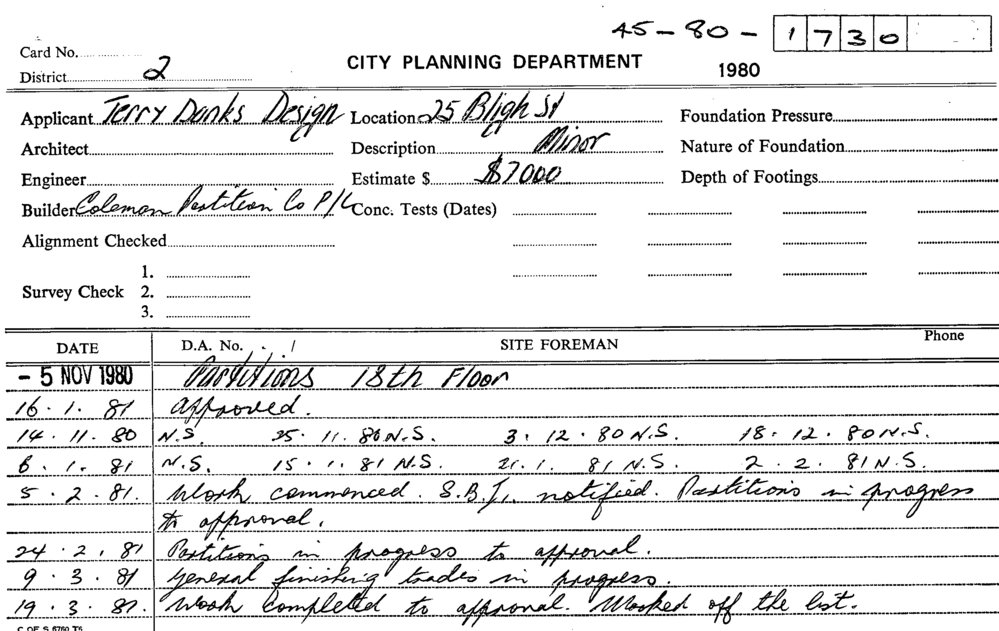 45-80- 1730
Card No.
CITY PLANNING DEPARTMENT
District 2
1980
Applicant Terry Danks Design Location 25 Bligh St Foundation Pressure
Architect Description Minor Nature of Foundation
Engineer Estimate $ $7000 Depth of Footings
Builder Coleman Partition Co P/L Conc. Tests (Dates)
Alignment Checked
1.
Survey Check 2.
3.
DATE D.A. No. / SITE FOREMAN Phone
- 5 NOV 1980 Partitions 18th Floor
16.1.81 Approved.
14.11.80 N.S. 25.11.80 N.S. 3.12.80 N.S. 18.12.80 N.S.
6.1.81 N.S. 15.1.81 N.S. 21.1.81 N.S. 2.2.81 N.S.
5.2.81. Work commenced. S.B.I. notified. Partitions in progress
to approval.
24.2.81 Partitions in progress to approval.
9.3.81 General finishing trades in progress.
19.3.81. Work completed to approval. Marked off the list.
C OF S 6760 T5